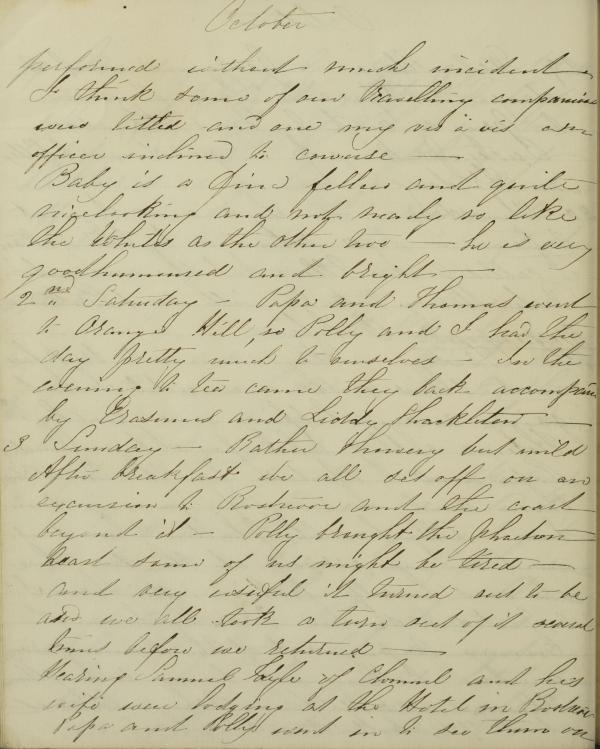 October
performed without much incident
I think some of our travelling companions
were titled and one my vis à vis an
officer inclined to converse —
Baby is a fine fellow and quite
nicelooking and not nearly so like
the Whites as the other two — he is very
goodhumoured and bright —
2nd Saturday — Papa and Thomas went
to Orange Hill, so Polly and I had the
day pretty much to ourselves — In the
evening to tea came they back accompanied
by Erasmus and Liddy Shackleton —
3 Sunday — Rather showery but mild
After breakfast we all set off on an
excursion to Rostrevor and the coast
beyond it — Polly brought the phaeton
least some of us might be tired —
and very useful it turned out to be
and we all took a turn out of it several
times before we returned —
Hearing Samuel of Clonmel and his
wife were lodging at the Hotel in Rostrevor
Papa and Polly went in to see them on